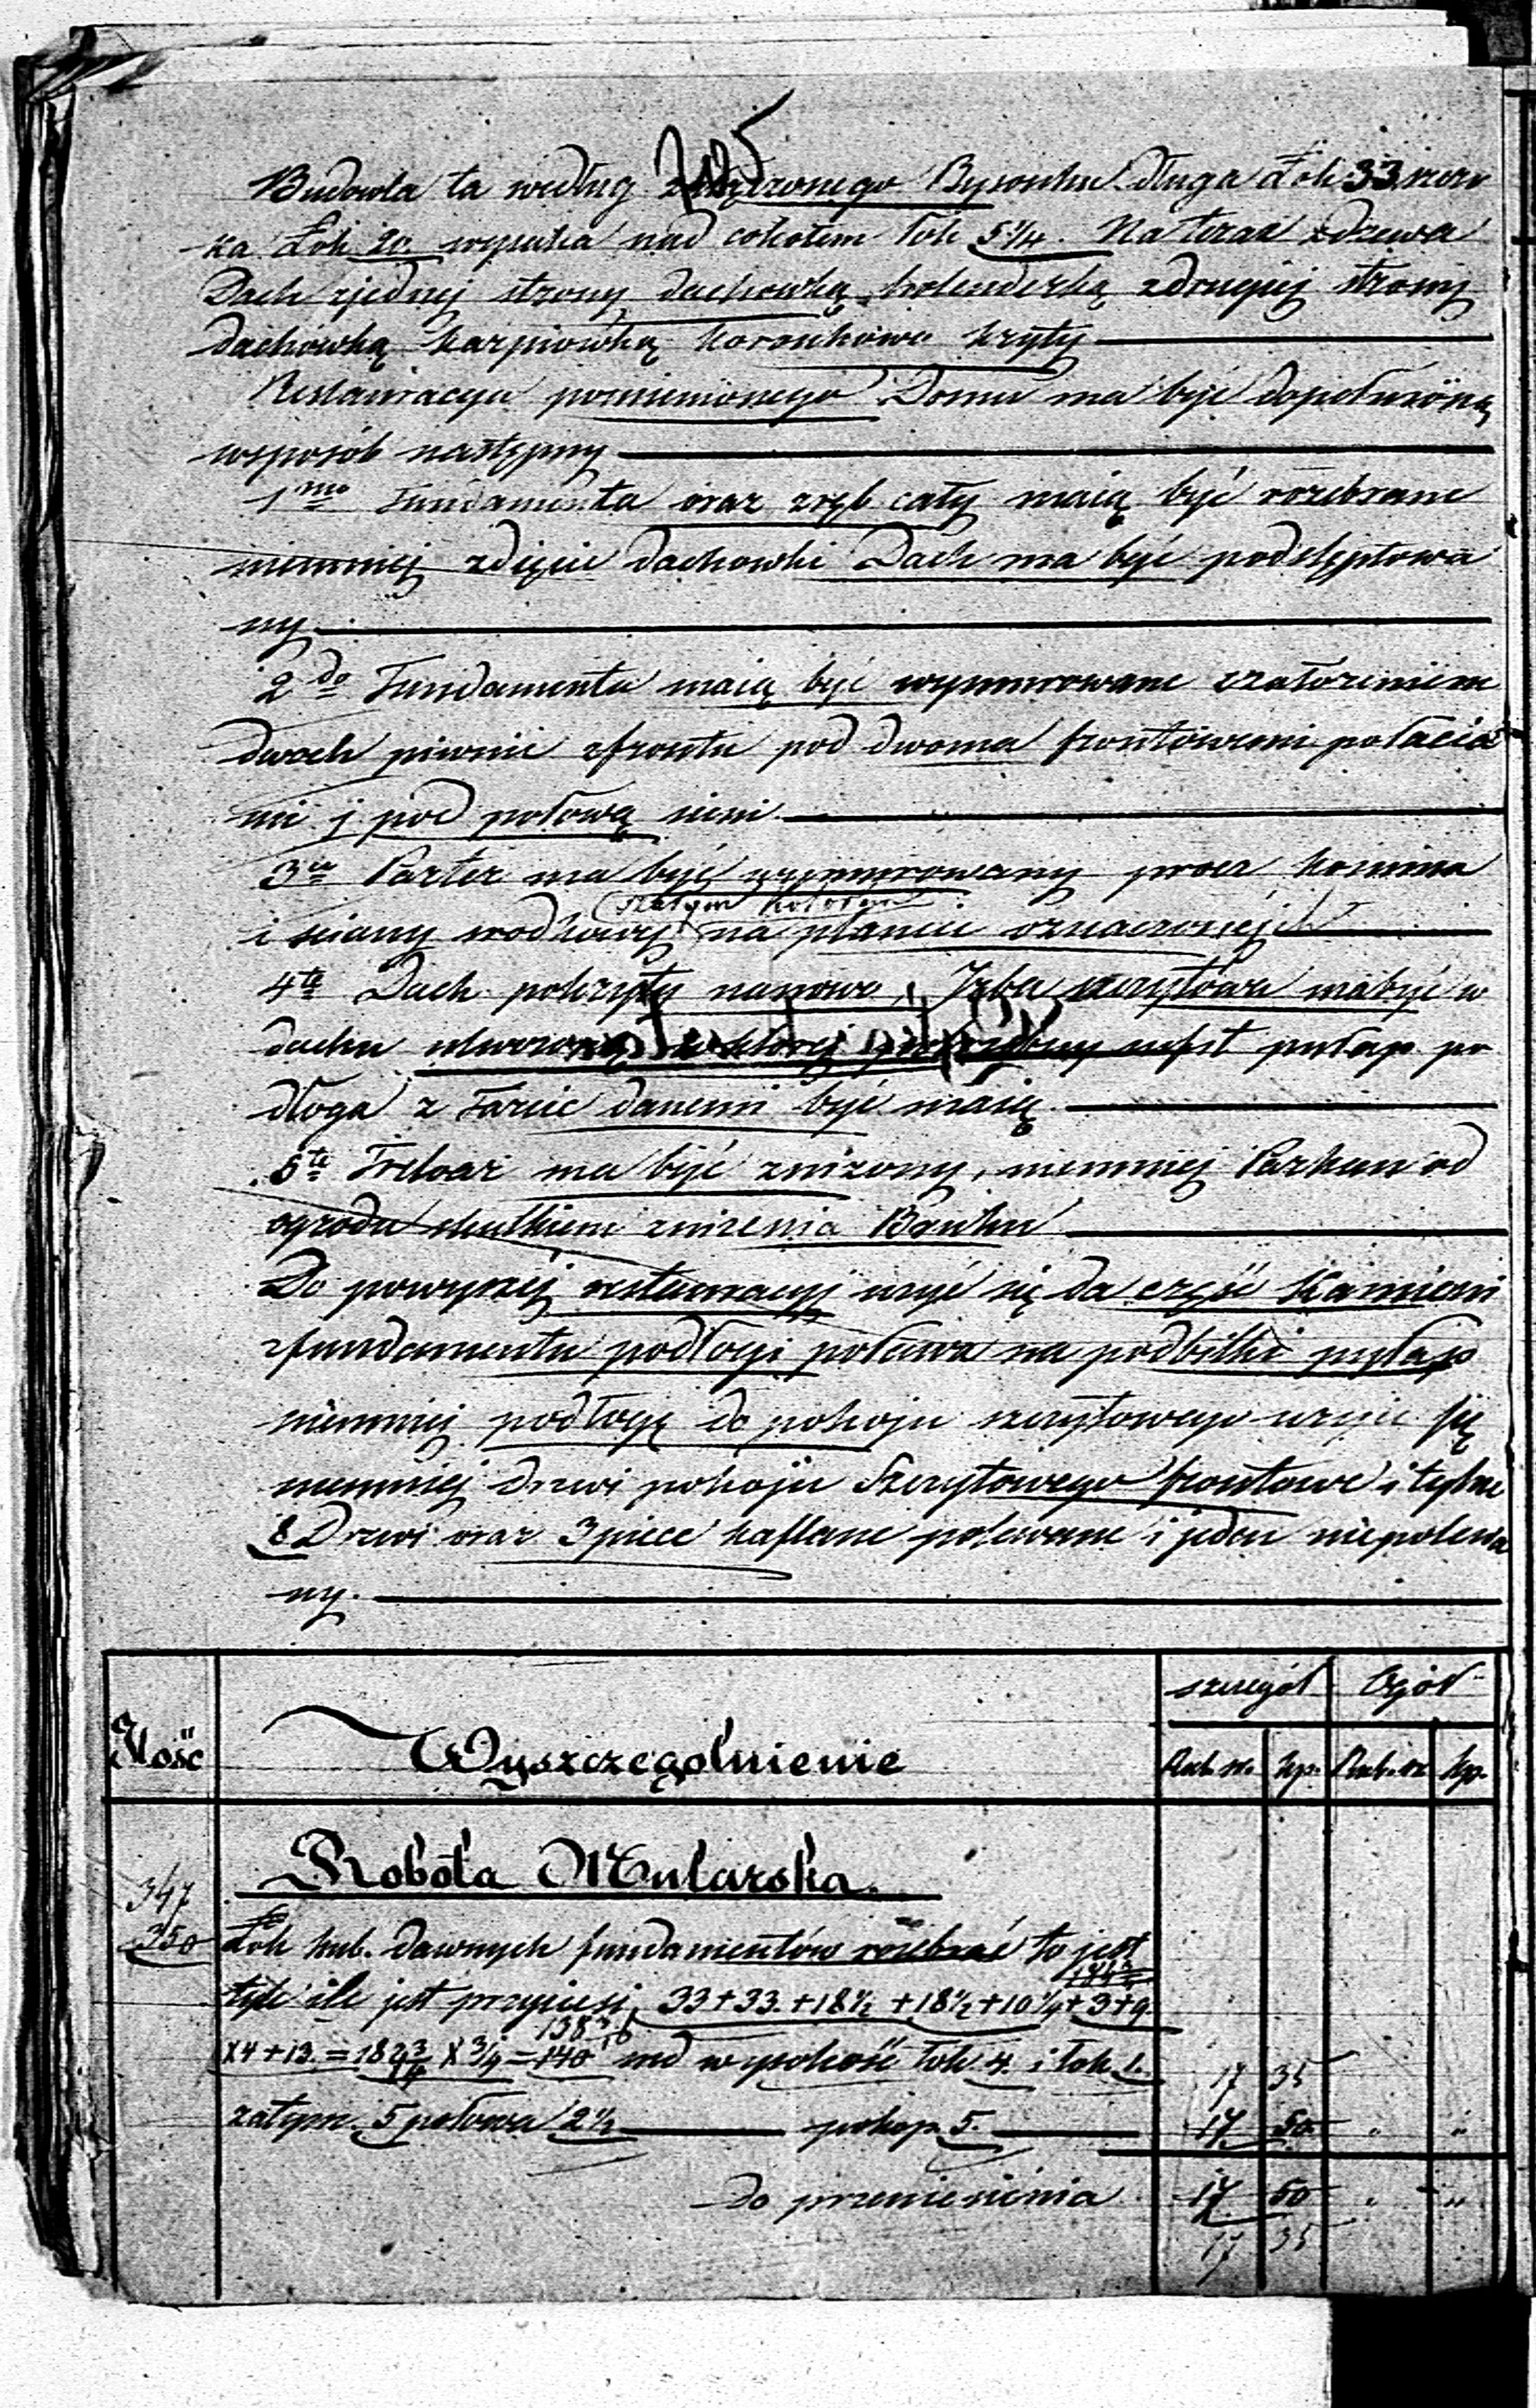 205
Budowla ta według załączonego Rysunku długa Łok: 33. szero
ka Łok 20. wysoka nad cokołem łok 5 1/4. Na teraz z drzewa
Dach zjednej strony dachowką holenderką zdrugiej strony
dachówką karpiowką koronkowo kryty
Restauracya pomienionego Domu ma być dopełnioną
wsposób następny
1mo Fundamenta oraz zręb cały maią być rozebrane
niemniej zdięcie dachowki Dach ma być podstęplowa
ny
2do Fundamenta maią być wymurowane z założeniem
dwoch piwnic zfrontu pod dwoma frontowemi połacia
mi j pod połową sieni
3o Parter ma być wymurowany procz komina
żółtym kolorem
i sciany srodkowej na planie oznaczonej
4to Dach pokryty nanowo, Izba szczytowa ma być w
dachu utworzoną w ktorej pułap po
dłoga z Tarcic danemi być maią
5to Tretoar ma być zniżony, niemniej Parkan od
ogrodu skutkiem zniżenia Bruku
Do powyższéj restauracyj użyć się da część Kamieni
zfundamentu podłogi połowa na podbitki pułap
niemniej podłogę do pokoju szczytowego użyie się
niemniej drzwi pokoju Szczytowego frontowe i tylne
8 Drzwi oraz 3 piece kaflane polewane i jeden niepolewa
ny.
Ilość Wyszczególnienie szczegół Ogół
Rub. sr. kp. Rub. sr kp.
Robota Mularska.
347
350 Łok kub. dawnych fundamentów rozebrać to jest
184 3/4
tyle ile jest przyciesi, 33+33.+18 1/2+18 1/2+10 1/4+9+9.
138 9/16
x4+13.=18 x 3/4=140 na wysokość łok 4. i łok. 1. 17 35
zatym 5 połowa 2 1/2 po kop. 5. 17 50 " "
Do przeniesienia 17 50 " "
17 35